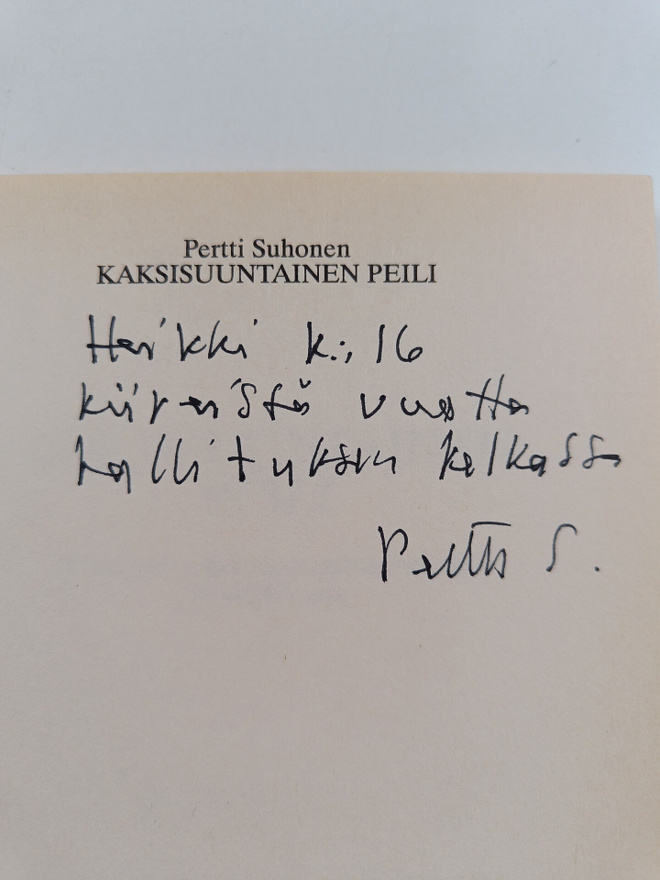 Pertti Suhonen
KAKSISUUNTAINEN PEILI
Heikki k:, 16
kiireistä vuotta
hallituksen kelkassa
Pertti S.